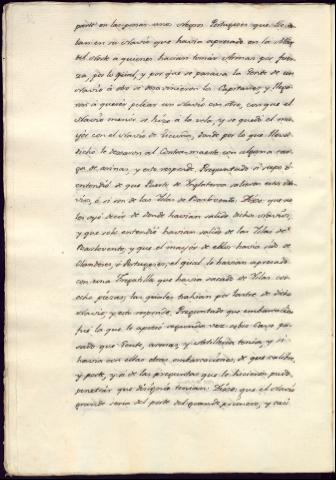 parte en las ponar unos Negros Portugueses que lle-
ban en su Navío que havía apresado en la Mar
del Norte á quienes hacían tomar Armas por fuer-
za, por lo qual, y por que se pasava la Gente de un
Navío á otro se desavinieron los Capitanes, y llega-
ron á querer pelear un Navío con otro, con que el
Navío menor se hizo á la vela, y se quedó el ma-
yor con el Navío de donde por lo que lleva
dicho le dexaron al Contramaestre con alguna car-
ga de arinas, y esto responde. Preguntado si supo ó
entendió de que Puerto de Inglaterra salieron estos Na-
víos, ó si son de las Yslas de Barlovento. Dixo: que no
les oyó decir de donde havían salido dichos Navíos,
y que solo entendió havían salido de las Yslas de
Barlovento, y que el mayor de ellos havía sido de
Olandeses, ó Portugueses; el qual lo havían apresado
con una Fragatilla que havía sacado de Yslas con
ocho piezas, las quales trahían por lastre de dicho
Navío; y esto responde. Preguntado que embarcación
fué la que lo apresó segunda vez este Corso pa-
sado que Gente, armas, y Artillería tenía, y si
havía con ellas otras embarcaciones, de que calibo,
y porte, y si de las preguntas que le hicieron pudo
penetrar que disignio tenían: Dixo: que el Navío
grande sería del porte del grande primero, y casi